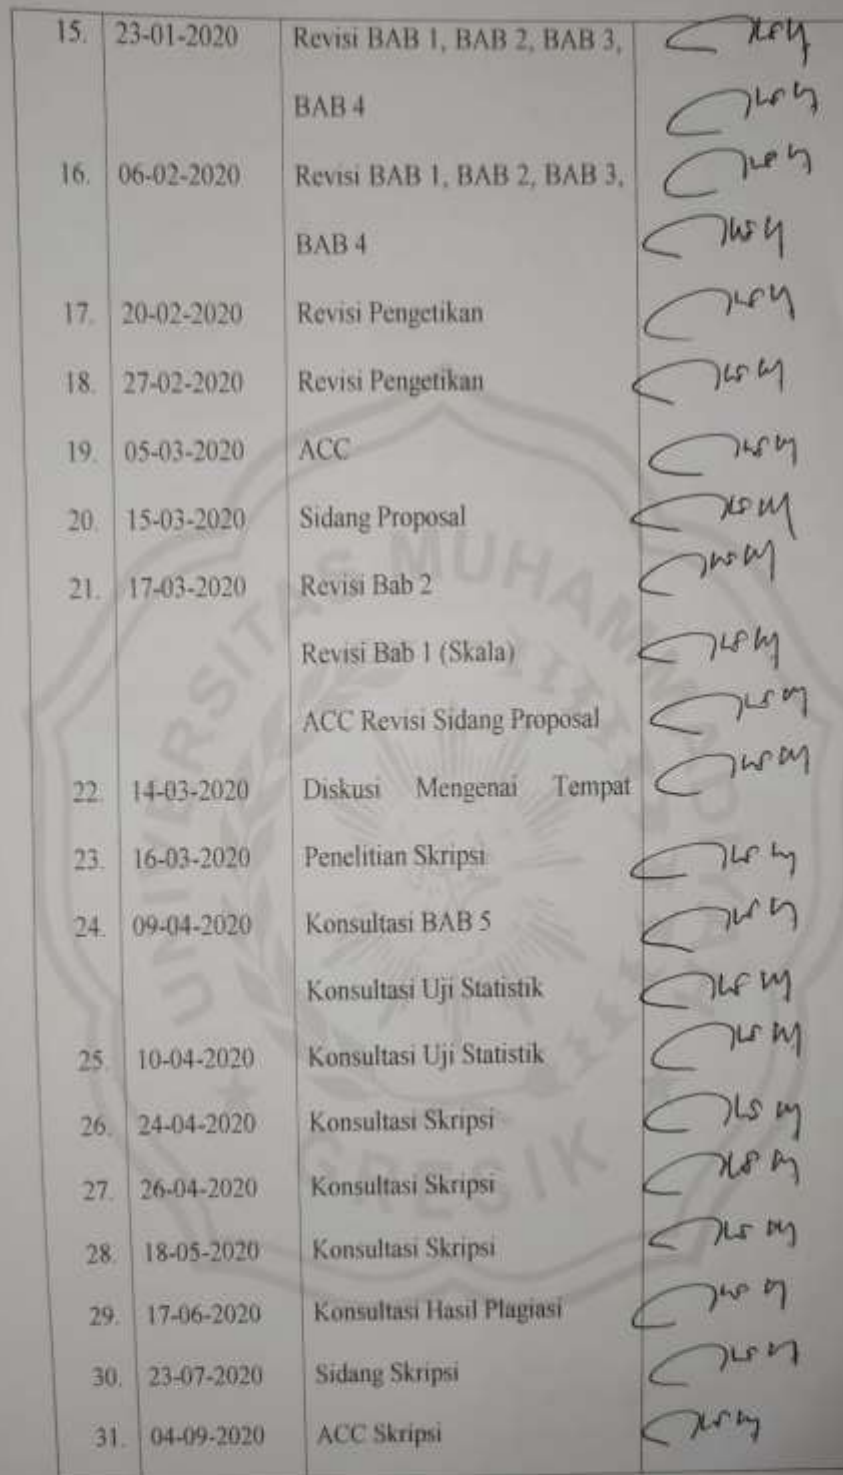 15. 23-01-2020 Revisi BAB 1, BAB 2, BAB 3,
BAB 4
16. 06-02-2020 Revisi BAB 1, BAB 2, BAB 3,
BAB 4
17. 20-02-2020 Revisi Pengetikan
18. 27-02-2020 Revisi Pengetikan
19. 05-03-2020 ACC
20. 15-03-2020 Sidang Proposal
21. 17-03-2020 Revisi Bab 2
Revisi Bab 1 (Skala)
ACC Revisi Sidang Proposal
22. 14-03-2020 Diskusi Mengenai Tempat
23. 16-03-2020 Penelitian Skripsi
24. 09-04-2020 Konsultasi BAB 5
Konsultasi Uji Statistik
25. 10-04-2020 Konsultasi Uji Statistik
26. 24-04-2020 Konsultasi Skripsi
27. 26-04-2020 Konsultasi Skripsi
28. 18-05-2020 Konsultasi Skripsi
29. 17-06-2020 Konsultasi Hasil Plagiasi
30. 23-07-2020 Sidang Skripsi
31. 04-09-2020 ACC Skripsi
UNIVERSITAS MUHAMMADIYAH
GRESIK